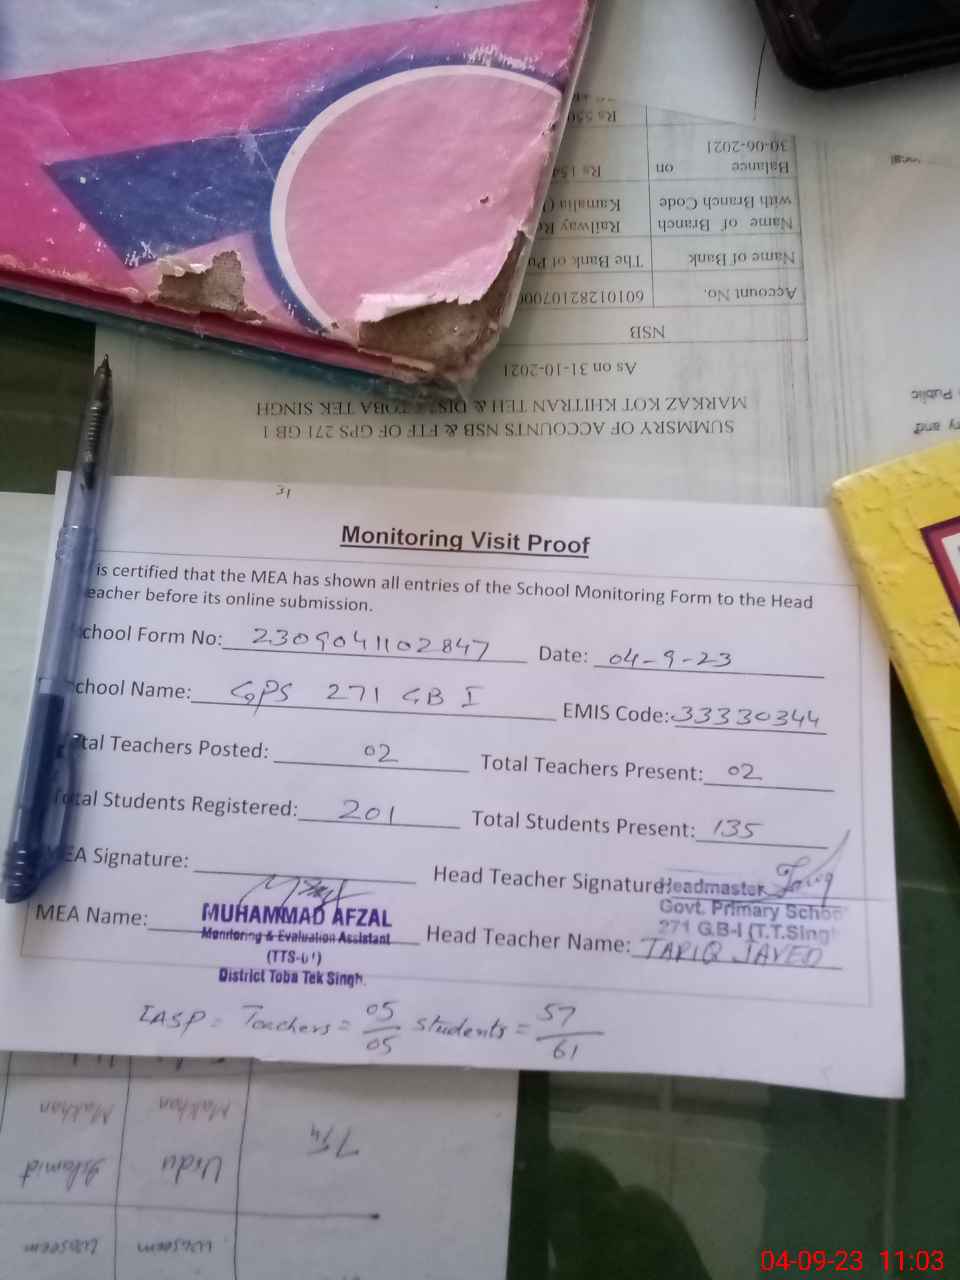 Monitoring Visit Proof
is certified that the MEA has shown all entries of the School Monitoring Form to the Head
eacher before its online submission.
chool Form No: 2309041102847 Date: 04-9-23
chool Name: GPS 271 GB I EMIS Code: 33330344
tal Teachers Posted: 02 Total Teachers Present: 02
Total Students Registered: 201 Total Students Present: 135
EA Signature: Head Teacher Signature:
Headmaster
Govt. Primary School
271 G.B-I (T.T.Singh
MEA Name: MUHAMMAD AFZAL Head Teacher Name: TARIQ JAVED
Monitoring & Evaluation Assistant
District Toba Tek Singh.
IASP = Teachers = 05/05 students = 57/61
SUMMSRY OF ACCOUNTS NSB & FTF OF GPS 271 GB 1
MARKAZ KOT KHITRAN TEH & DIS TOBA TEK SINGH
As on 31-10-2021
NSB
Account No. 6010128210700
Name of Bank The Bank of Pu
Name of Branch Railway Ro
with Branch Code Kamalia (
Balance on Rs 154
30-06-2021
Rs 550
Public
ry and
Waseem Waseem
Islamid Urdu 7th
Makhan Makhan
04-09-23 11:03